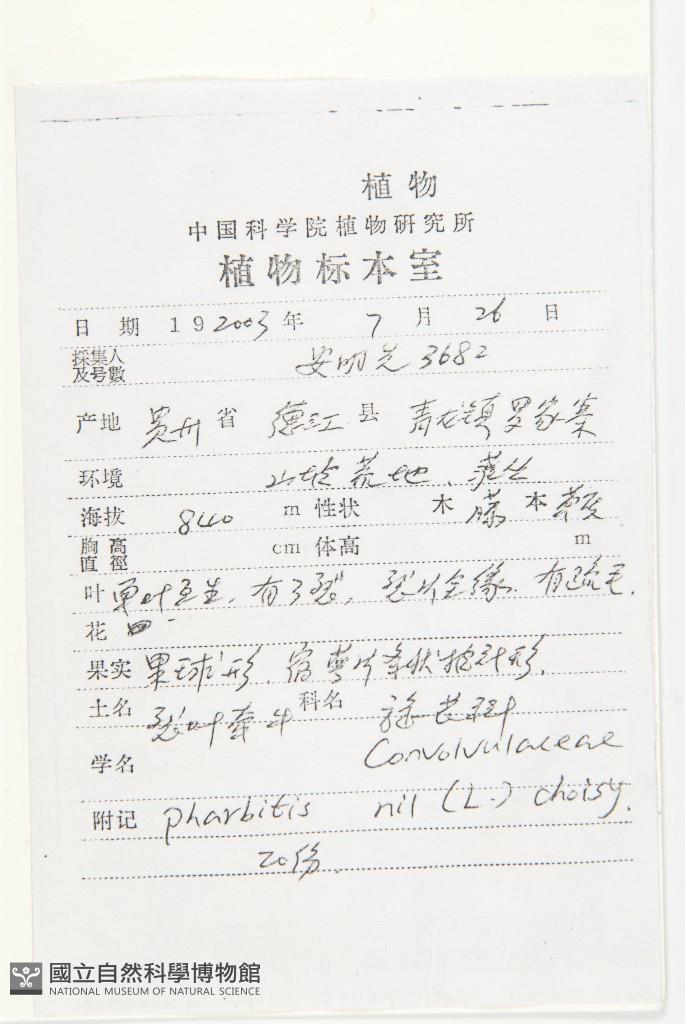 植物
中国科学院植物研究所
植物标本室
日 期 19 2003 年 7 月 26 日
採集人 安明先 3682
及号數
产地 贵州 省 德江 县 青龙镇 罗家寨
环境 山坡荒地、灌丛
海拔 840 m 性状 木 藤 本
胸高 cm 体高 m
直徑
叶 单叶互生, 有3裂, 裂片全缘. 有疏毛.
花
果实 果球形, 宿萼片条状披针形.
土名 裂叶牵牛 科名 旋花科
学名 Convolvulaceae
附记 pharbitis nil (L.) choisy.
20份.
國立自然科學博物館
NATIONAL MUSEUM OF NATURAL SCIENCE